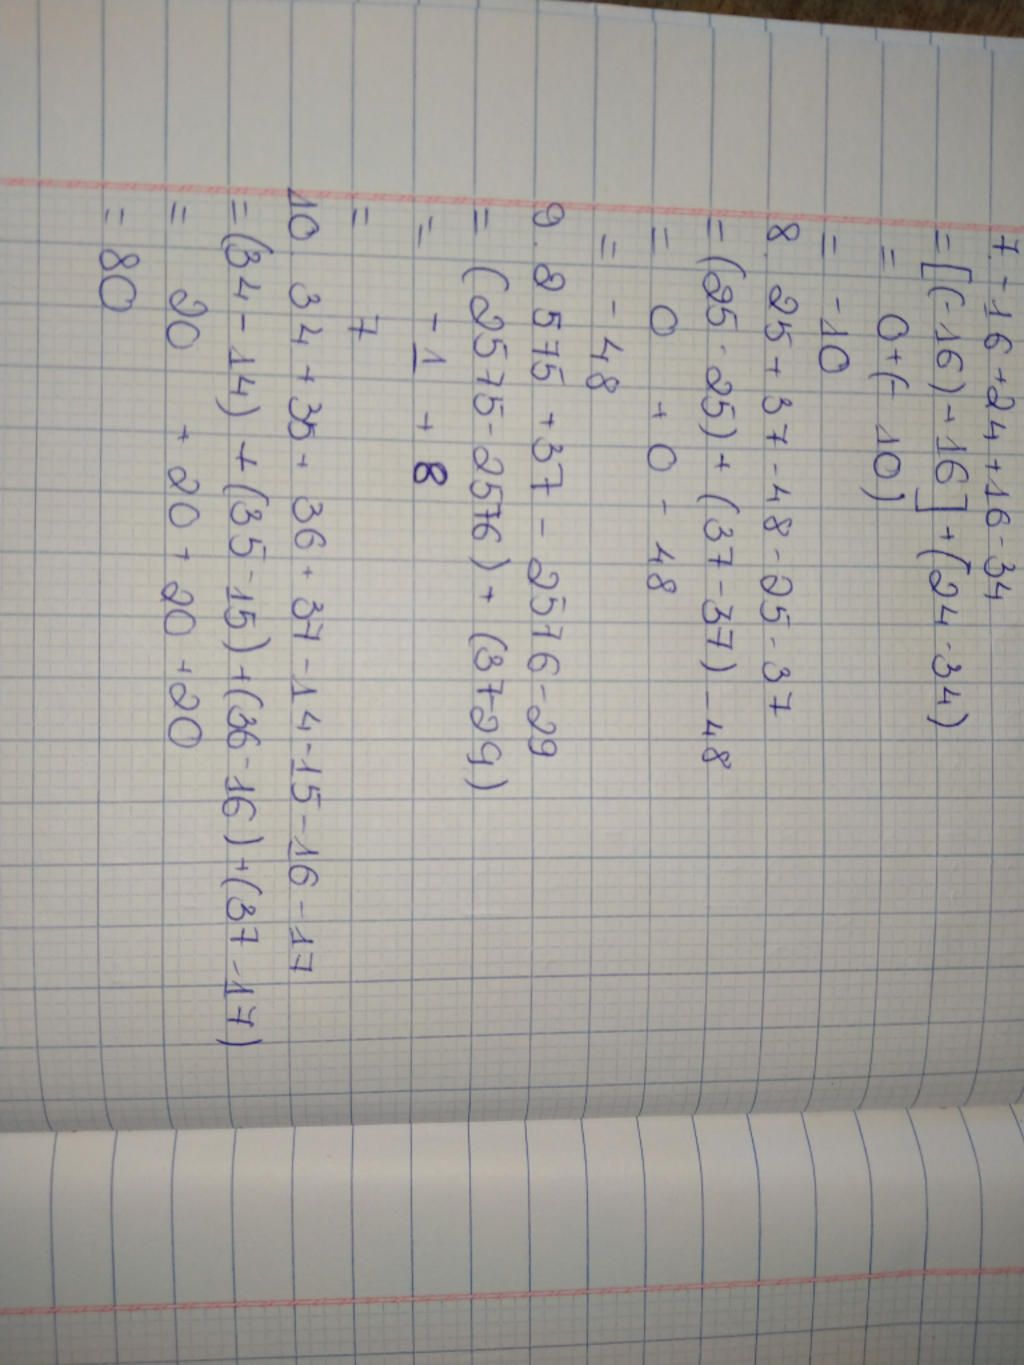 7. -16+24+16-34
= [(-16)+16]+(24-34)
= 0+(-10)
= -10
8. 25+37-48-25-37
= (25-25)+(37-37)-48
= 0 + 0 - 48
= -48
9. 2575+37-2576-29
= (2575-2576)+(37+29)
= -1 + 8
= 7
10. 34+35+36+37-14-15-16-17
= (34-14)+(35-15)+(36-16)+(37-17)
= 20 + 20 + 20 + 20
= 80